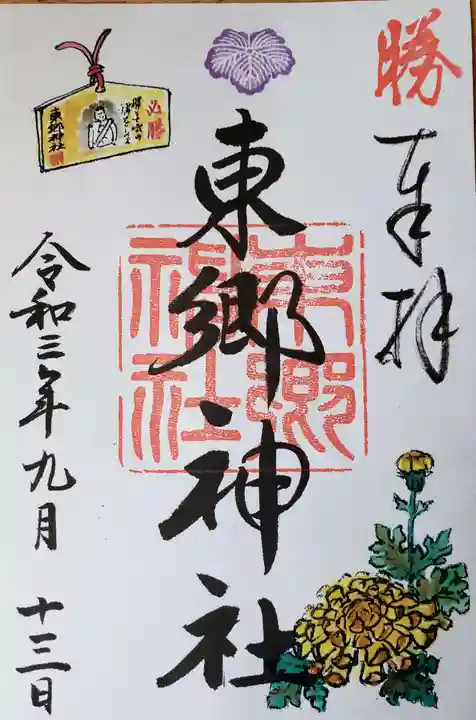 勝
奉拝
東郷神社
東郷神社
令和三年九月 十三日
必勝
東郷神社